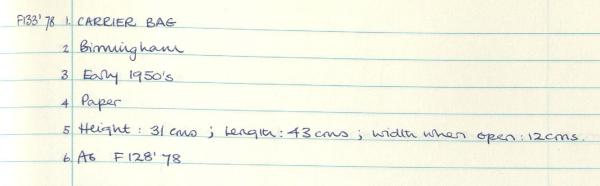 F133'78 1. CARRIER BAG
2 Birmingham
3 Early 1950's
4 Paper
5 Height : 31 cms ; Length : 43 cms ; width when open : 12 cms.
6. As F128'78